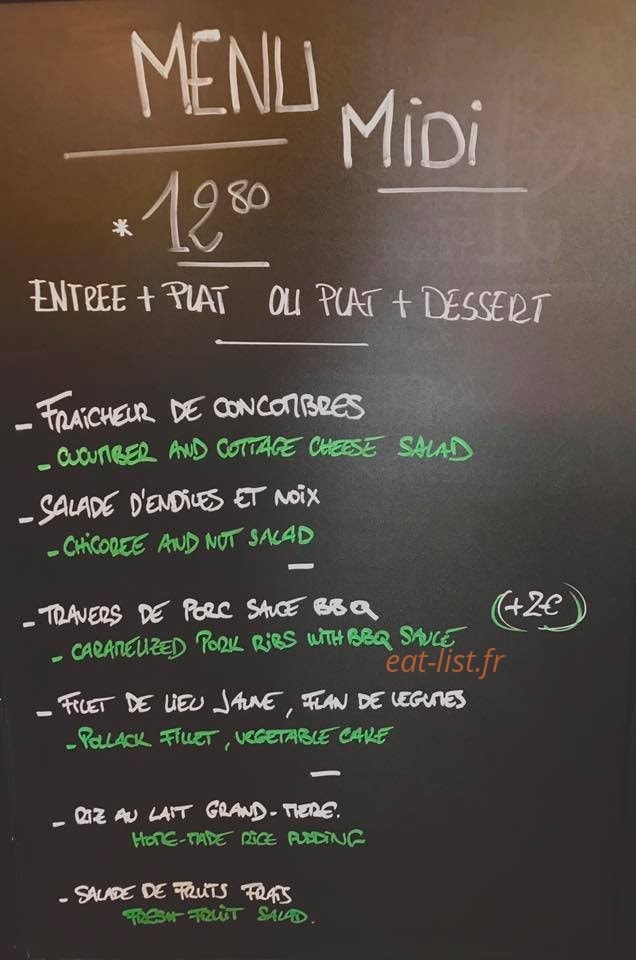 MENU
MiDi
* 12 80
ENTREE + PLAT OU PLAT + DESSERT
- FRAîCHEUR DE CONCOMBRES
- CUCUMBER AND COTTAGE CHEESE SALAD
- SALADE D'ENDIVES ET NOIX
- CHICOREE AND NUT SALAD
- TRAVERS DE PORC SAUCE BBQ (+2€)
- CARAMELIZED PORK RIBS WITH BBQ SAUCE
eat-list.fr
- FILET DE LIEU JAUNE, FLAN DE LEGUMES
- POLLACK FILLET, VEGETABLE CAKE
- RIZ AU LAIT GRAND-MERE.
HOME-MADE RICE PUDDING
- SALADE DE FRUITS FRAIS
FRESH FRUIT SALAD.